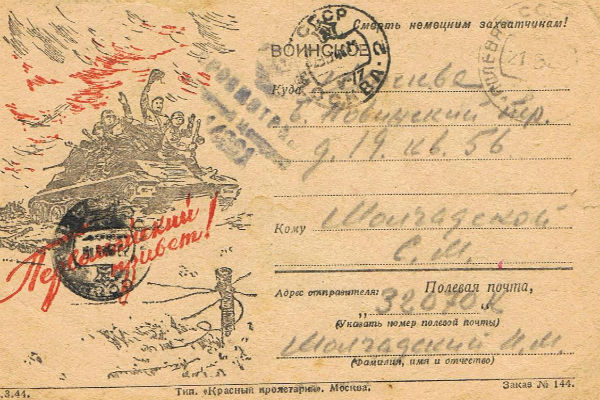 Смерть немецким захватчикам!
ВОИНСКОЕ
СССР
МОСКВА
ПОЛЕВАЯ
Куда Москва
Б. Новинский пер.
д. 19. кв. 56
Кому Молчадской
С. М.
Первомайский
привет!
Адрес отправителя: Полевая почта,
„32070 „
(Указать номер полевой почты)
Молчадский И. М.
(Фамилия, имя и отчество)
.3.44. Тип. «Красный пролетарий». Москва. Заказ № 144.